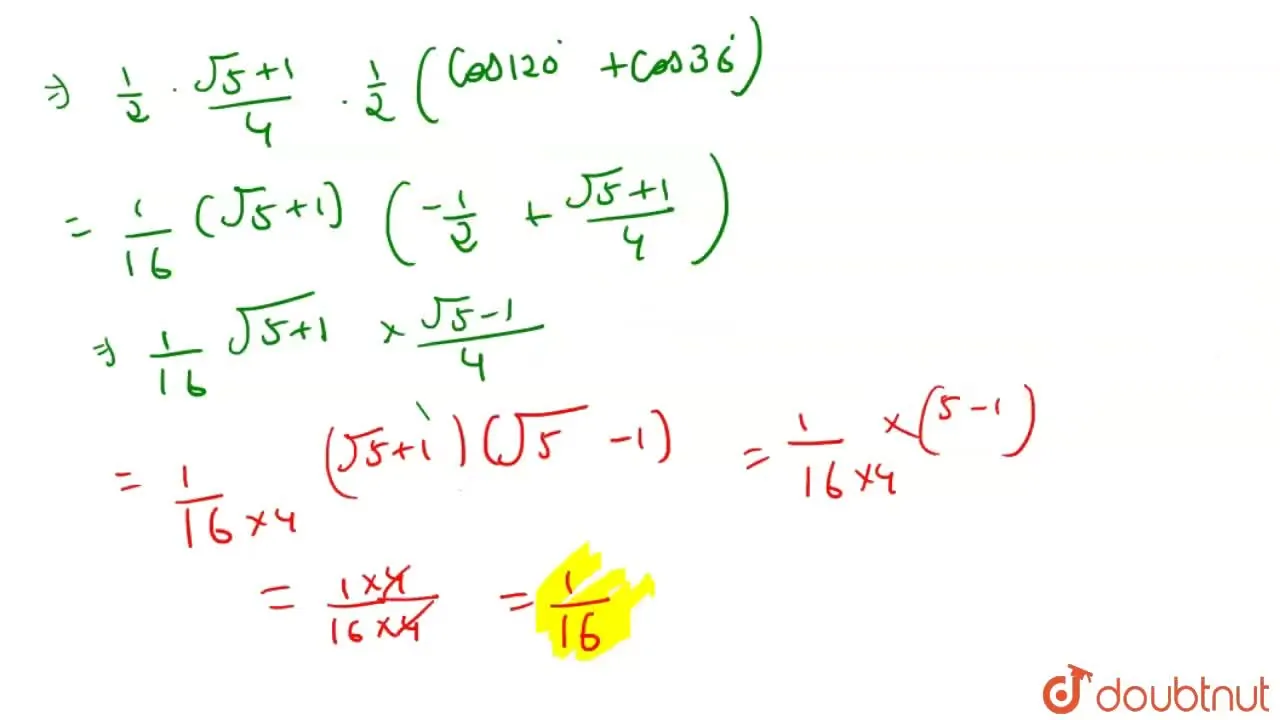 ⇒ 1/2 · (√5+1)/4 · 1/2 (Cos120° + Cos36°)
= 1/16 (√5+1) (-1/2 + (√5+1)/4)
⇒ 1/16 √5+1 × (√5-1)/4
= 1/(16×4) (√5+1)(√5-1) = 1/(16×4) × (5-1)
= (1×4)/(16×4) = 1/16
doubtnut